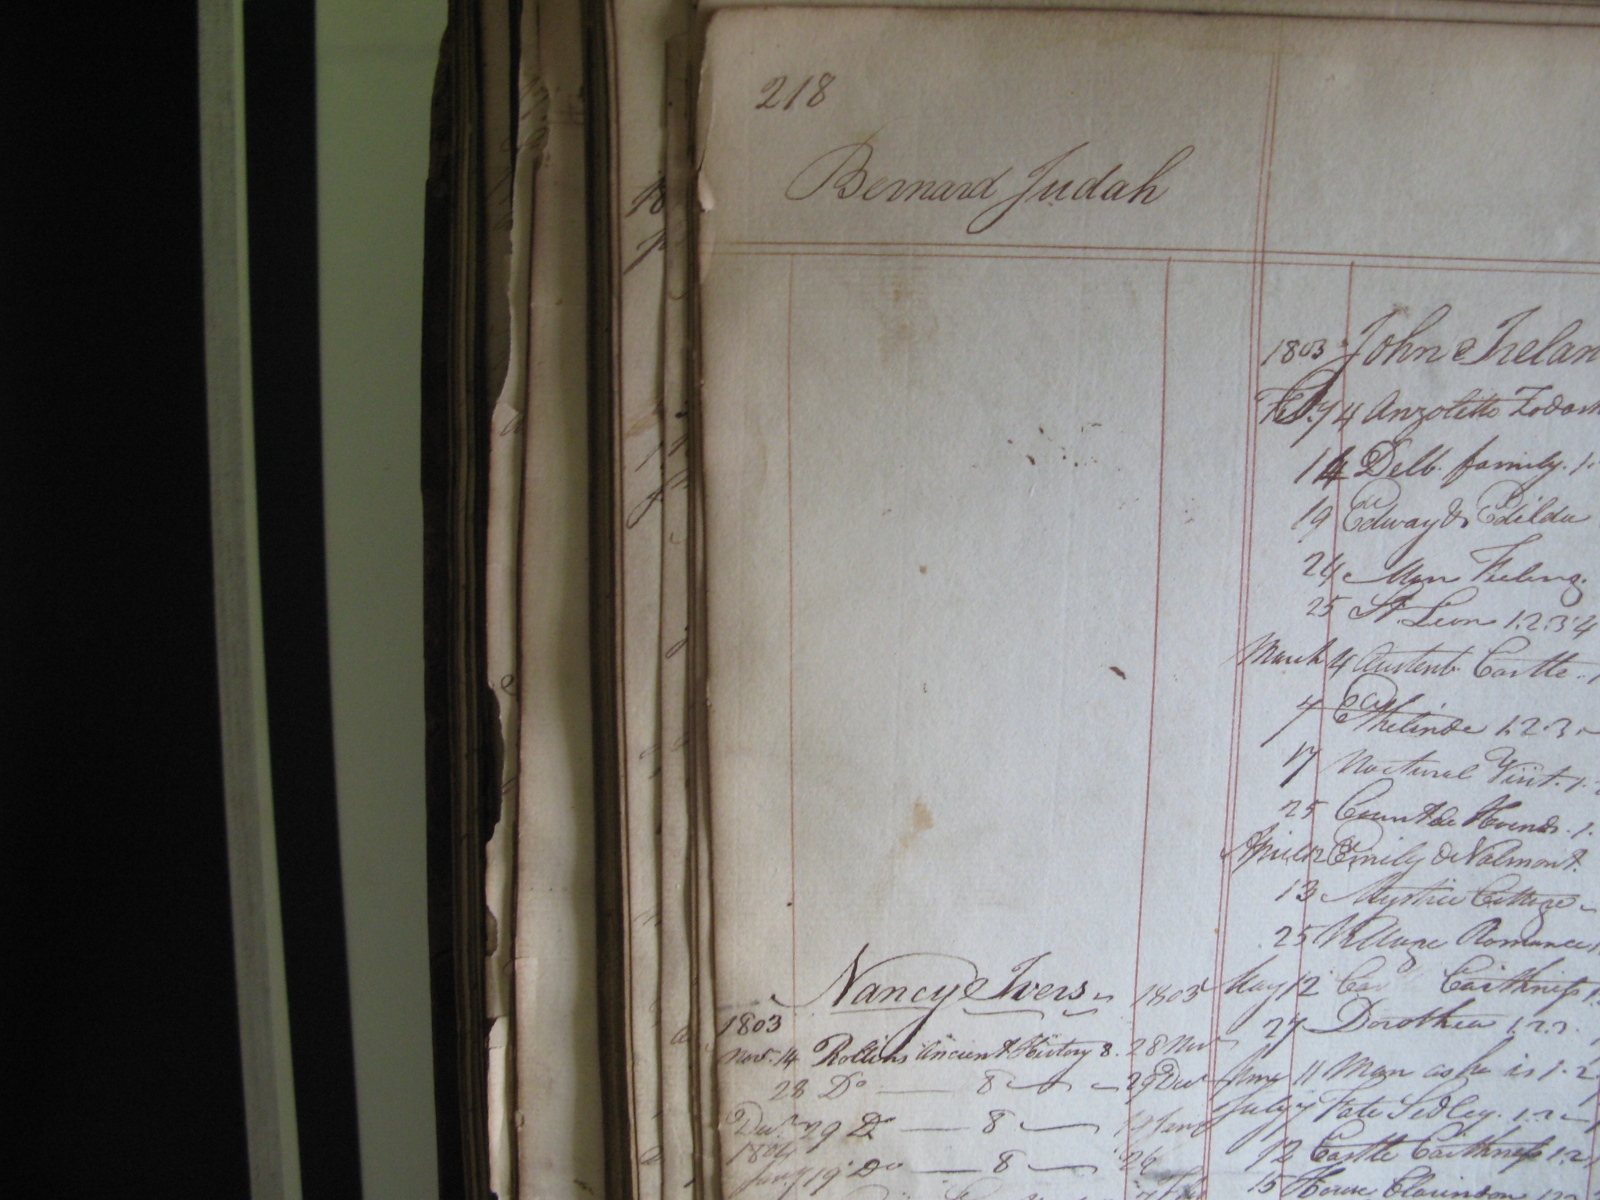 218
Bernard Judah
1803 John Irelan
Feby 4 Anzoletto Zodosk
14 Delb. family. 1.
19 Edway & Edilda
24 Man Feeling.
25 St. Leon 1.2.3.4
March 4 Austenb. Castle. 1
4 Ethelinde 1.2.3
17 Nocturnal Visit. 1.2
25 Count de Hoend. 1.
April 12 Emily de Valmont.
13 Mystic Cottage
25 Village Romance 1
May 12 Cas Caithness 1.
27 Dorothea 1.2.3.
June 11 Man as he is 1.2
July 7 Kate Sedley. 1.2
12 Castle Caithness 1.2
15 House Clarindon
Nancy Ivers 1803
1803
Nov. 14 Rollins Ancient History 8. 28 Nov
28 Do — 8 — 29 Decr
Decr. 29 Do — 8 — Jany
1804
Jany 19 Do — 8 — 26